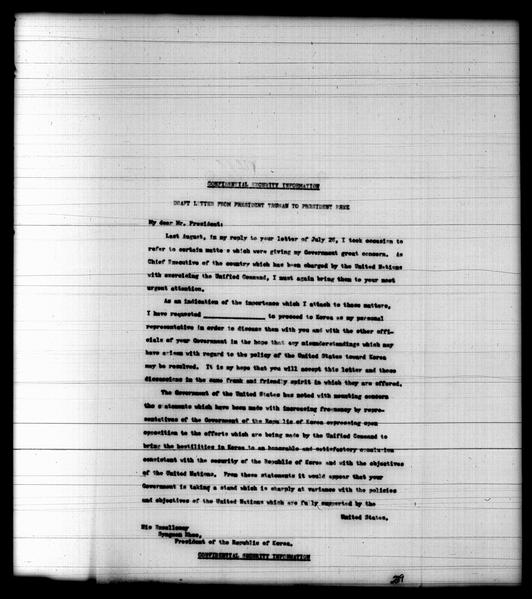 CONFIDENTIAL SECURITY INFORMATION
DRAFT LETTER FROM PRESIDENT TRUMAN TO PRESIDENT RHEE
My dear Mr. President:
Last August, in my reply to your letter of July 28, I took occasion to
refer to certain matters which were giving my Government great concern. As
Chief Executive of the country which has been charged by the United Nations
with exercising the Unified Command, I must again bring them to your most
urgent attention.
As an indication of the importance which I attach to these matters,
I have requested ____________ to proceed to Korea as my personal
representative in order to discuss them with you and with the other offi-
cials of your Government in the hope that any misunderstandings which may
have arisen with regard to the policy of the United States toward Korea
may be resolved. It is my hope that you will accept this letter and these
discussions in the same frank and friendly spirit in which they are offered.
The Government of the United States has noted with mounting concern
the statements which have been made with increasing frequency by repre-
sentatives of the Government of the Republic of Korea expressing open
opposition to the efforts which are being made by the Unified Command to
bring the hostilities in Korea to an honorable and satisfactory conclusion
consistent with the security of the Republic of Korea and with the objectives
of the United Nations. From these statements it would appear that your
Government is taking a stand which is sharply at variance with the policies
and objectives of the United Nations which are fully supported by the
United States.
His Excellency
Syngman Rhee,
President of the Republic of Korea.
CONFIDENTIAL SECURITY INFORMATION